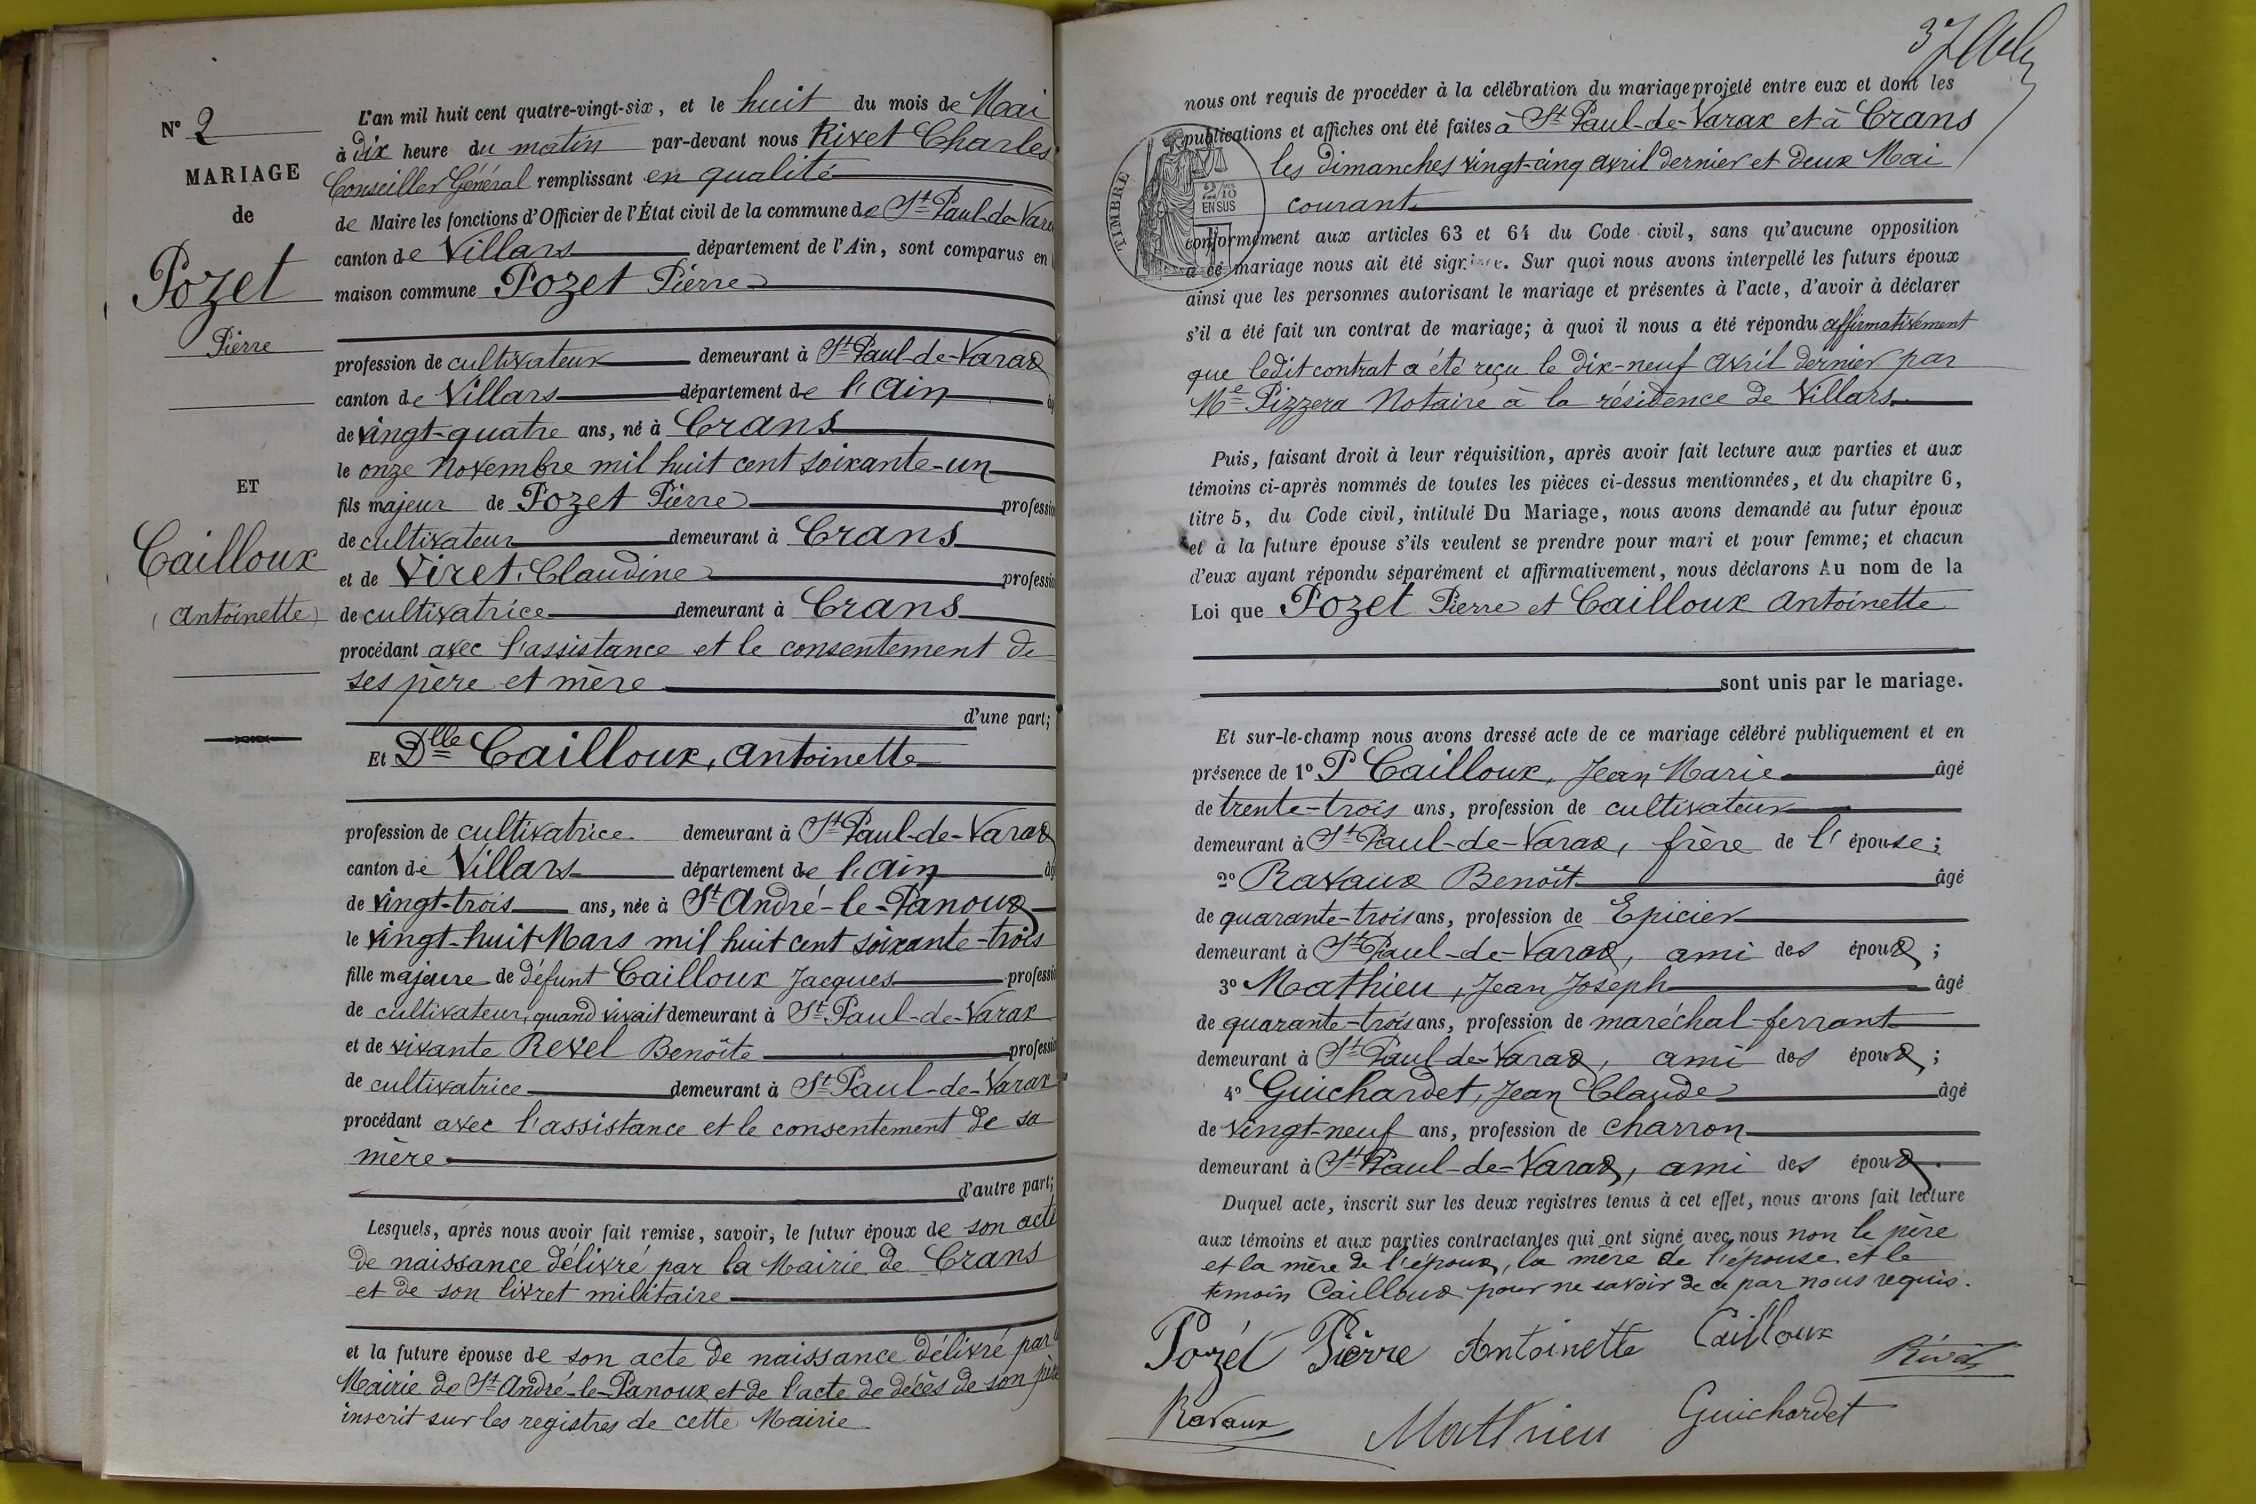 N° 2
MARIAGE
de
Pozet
Pierre
ET
Cailloux
(Antoinette)
L'an mil huit cent quatre-vingt-six, et le huit du mois de Mai
à dix heure du matin par-devant nous Rivet Charles
Conseiller Général remplissant en qualité
de Maire les fonctions d'Officier de l'État civil de la commune de St Paul-de-Vara
canton de Villars département de l'Ain, sont comparus en
maison commune Pozet Pierre
profession de cultivateur demeurant à St Paul-de-Varax
canton de Villars département de l'Ain
de vingt-quatre ans, né à Crans
le onze Novembre mil huit cent soixante-un
fils majeur de Pozet Pierre profession
de cultivateur demeurant à Crans
et de Viret, Claudine profession
de cultivatrice demeurant à Crans
procédant avec l'assistance et le consentement de
ses père et mère
d'une part;
Et Dlle Cailloux, Antoinette
profession de cultivatrice demeurant à St Paul-de-Varax
canton de Villars département de l'Ain
de vingt-trois ans, née à St André-le-Panoux
le vingt-huit Mars mil huit cent soixante-trois
fille majeure de défunt Cailloux Jacques profession
de cultivateur, quand vivait demeurant à St Paul-de-Varax
et de vivante Revel Benoîte profession
de cultivatrice demeurant à St Paul-de-Varax
procédant avec l'assistance et le consentement de sa
mère
d'autre part;
Lesquels, après nous avoir fait remise, savoir, le futur époux de son acte
de naissance délivré par la Mairie de Crans
et de son livret militaire
et la future épouse de son acte de naissance délivré par la
Mairie de St André-le-Panoux et de l'acte de décès de son père
inscrit sur les registres de cette Mairie
37
nous ont requis de procéder à la célébration du mariage projeté entre eux et dont les
publications et affiches ont été faites à St Paul-de-Varax et à Crans
les dimanches vingt-cinq avril dernier et deux Mai
courant
TIMBRE
2/10
EN SUS
conformément aux articles 63 et 64 du Code civil, sans qu'aucune opposition
à ce mariage nous ait été signifiée. Sur quoi nous avons interpellé les futurs époux
ainsi que les personnes autorisant le mariage et présentes à l'acte, d'avoir à déclarer
s'il a été fait un contrat de mariage; à quoi il nous a été répondu affirmativement
que ledit contrat a été reçu le dix-neuf avril dernier par
Me Pizzera Notaire à la résidence de Villars
Puis, faisant droit à leur réquisition, après avoir fait lecture aux parties et aux
témoins ci-après nommés de toutes les pièces ci-dessus mentionnées, et du chapitre 6,
titre 5, du Code civil, intitulé Du Mariage, nous avons demandé au futur époux
et à la future épouse s'ils veulent se prendre pour mari et pour femme; et chacun
d'eux ayant répondu séparément et affirmativement, nous déclarons Au nom de la
Loi que Pozet Pierre et Cailloux Antoinette
sont unis par le mariage.
Et sur-le-champ nous avons dressé acte de ce mariage célébré publiquement et en
présence de 1° P Cailloux, Jean Marie âgé
de trente-trois ans, profession de cultivateur
demeurant à St Paul-de-Varax, frère de l'épouse;
2° Ravaux Benoît âgé
de quarante-trois ans, profession de Epicier
demeurant à St Paul-de-Varax, ami des époux;
3° Mathieu, Jean Joseph âgé
de quarante-trois ans, profession de maréchal-ferrant
demeurant à St Paul-de-Varax, ami des époux;
4° Guichardet, Jean Claude âgé
de vingt-neuf ans, profession de charron
demeurant à St Paul-de-Varax, ami des époux.
Duquel acte, inscrit sur les deux registres tenus à cet effet, nous avons fait lecture
aux témoins et aux parties contractantes qui ont signé avec nous non le père
et la mère de l'époux, la mère de l'épouse et le
témoin Cailloux pour ne savoir de ce par nous requis.
Pozet Pierre Antoinette Cailloux Rivet
Ravaux Mathieu Guichardet